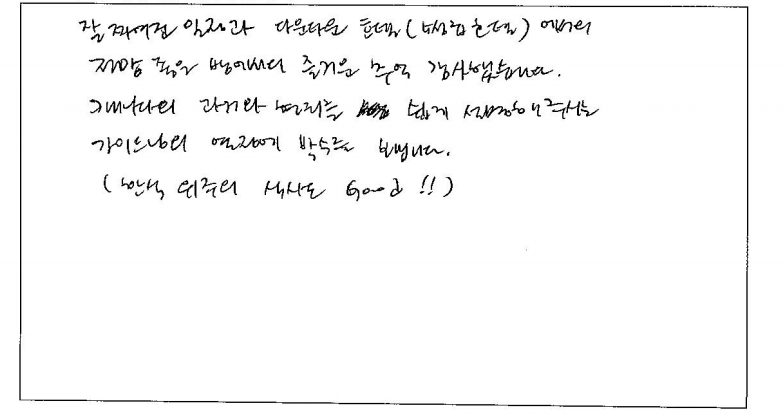 잘 짜여진 일정과 다운타운 호텔 (밴쿠버 호텔) 에서의
전망 좋은 방에서의 즐거운 추억 감사했습니다.
캐나다의 과거와 현재를 쉽게 설명해 주시는
가이드님의 열정에 박수를 보냅니다.
(한식 위주의 식사도 Good !!)